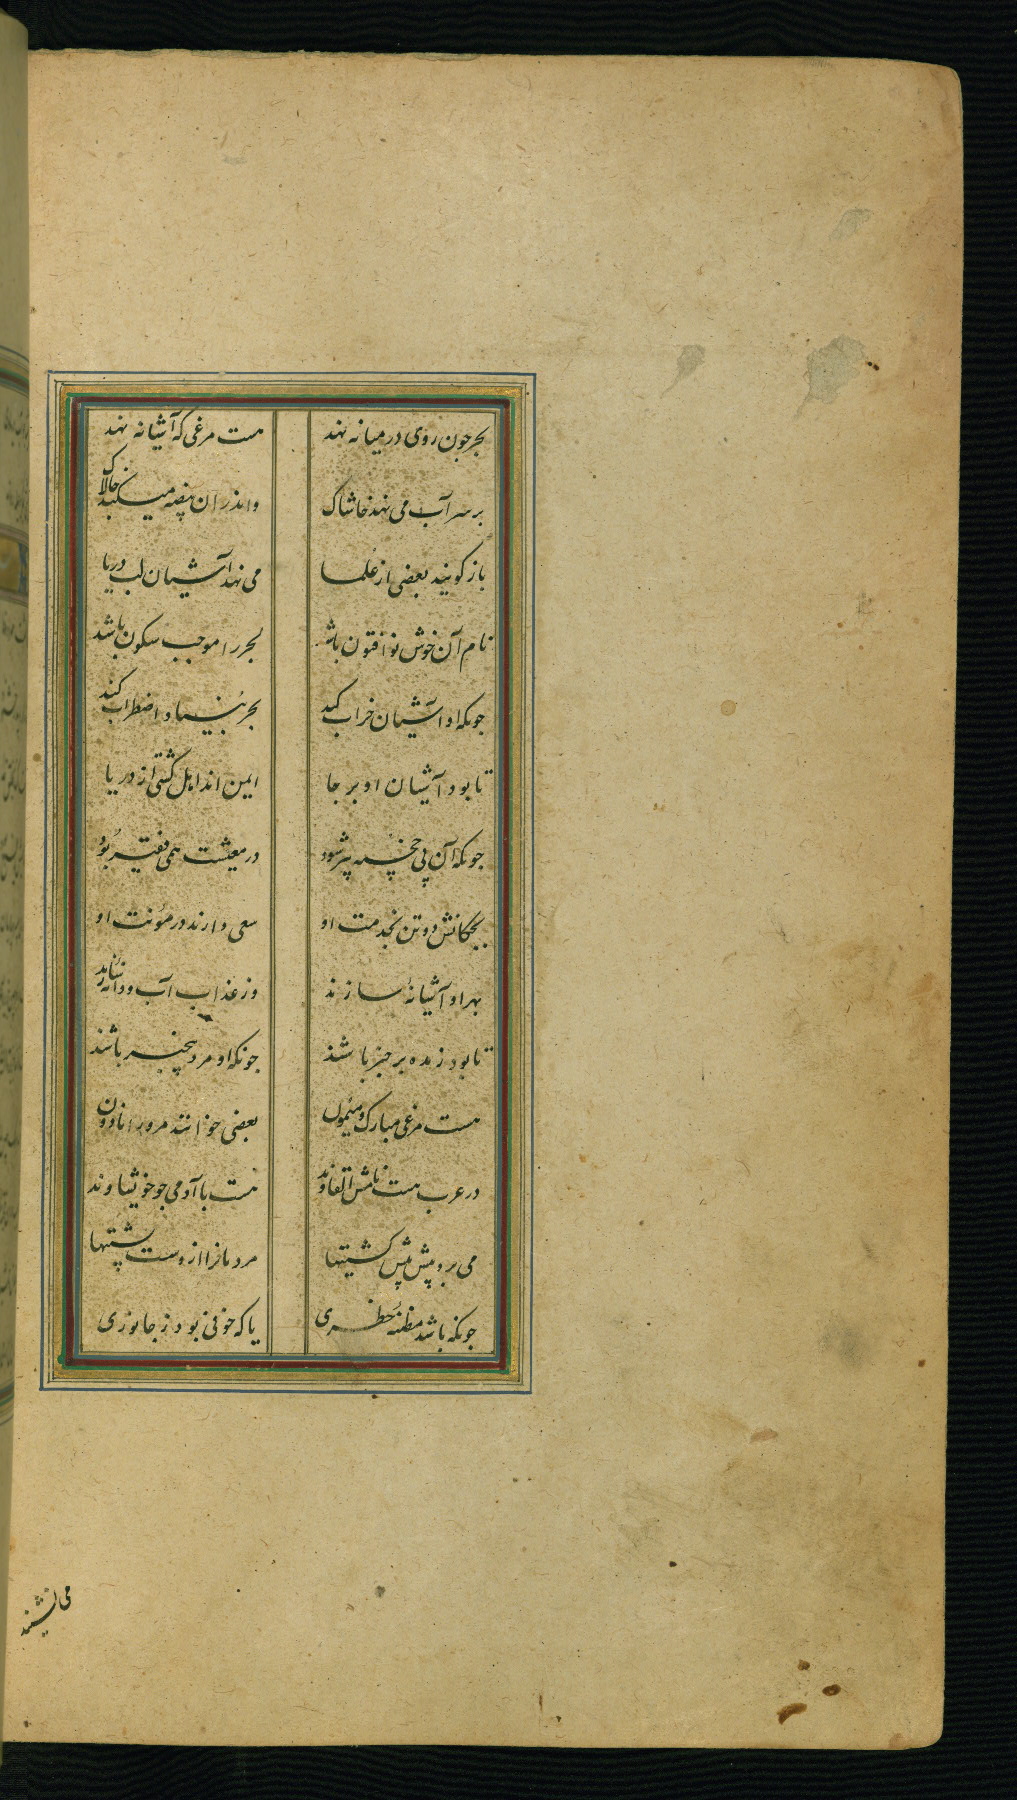 بحر چون روی در میانه نهد هست مرغی که آشیانه نهد
بر سر آب می نهد خاشاک واندر آن بیضه میکند چالاک
باز کویند بعضی از علما می نهد آشیان لب دریا
نام آن خوش نوا فنون باشد بحر را موجب سکون باشد
چونکه او آشیان خراب کند بحر بنیاد اضطراب کند
تا بود آشیان او بر جا ایمن اند اهل کشتی از دریا
چونکه آن پی خجسته پیر شود در معیشت همی فقیر بود
بچکانش دوتن بخدمت او سعی دارند در مؤنت او
بهر او آشیانهٔ سازند وز عذاب آب و دانه
تا بود زنده بر خبر باشند چونکه او مرد بیخبر باشند
هست مرغی مبارک و میمون بعضی خوانند مرورا
در عرب هست نامش هست با آدمی چو خویشاوند
می برد پیش پیش کشتیها مردمانرا از وست پشتیها
چونکه باشد مظنهٔ خطری یا که خوفی بود ز جانوری
می نشیند